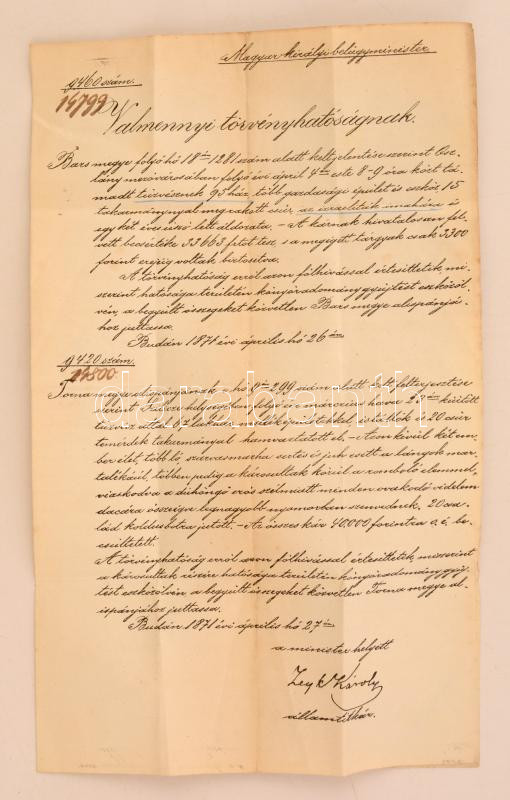 Magyar királyi belügyminister
9460 szám.
14799
Valmennyi törvényhatóságnak.
Bars megye folyó hó 18án 1281 szám alatt kelt jelentése szerint Osz-
lány mezővárosában folyó évi április 4én este 8-9 óra közt tá-
madt tűzvésznek 95 ház, több gazdasági épület és eszköz 15
takarmánynyal megrakott csűr, az izraeliták imaháza és
egy két éves is lett áldozata. – A kárnak hivatalosan fel-
vett becsértéke 33665 frtot tesz, s a megégett tárgyak csak 3300
forint erejéig voltak biztositva.
A törvényhatóság erről azon fölhivással értesittetik, mi-
szerint hatósága területén könyöradomány gyűjtést eszközöl-
vén, a begyült összegeket közvetlen Bars megye alispánjá-
hoz juttassa.
Budán 1871 évi április hó 26án
9420 szám.
14800
Torna megye alispánjának e hó 10én 299 szám alatt kelt felterjesztése
szerint helységben folyó évi március hava 28án kiütött
tűzvész által lakház melléképületekkel, istállók és 20 csűr
temérdek takarmánynyal hamvasztatott el. – Azon kivül két em-
ber élet, több ló, szarvasmarha sertés és juh esett a lángok mar-
talékáúl, többen pedig a károsultak közül a romboló elemmel
viaskodva a dühöngő erős szél miatt minden óvakodó védelem
dacára össze égve legnagyobb nyomorban szenvednek, 20 csa-
lád koldusbotra jutott. – Az összes kár 40,000 forintra o. é. be-
csültetett.
A törvényhatóság erről azon fölhivással értesittetik miszerint
a károsultak részére hatósága területén könyöradomány gyűj-
tést eszközölvén a begyült összegeket közvetlen Torna megye al-
ispánjához juttassa.
Budán 1871 évi április hó 27én
a minister helyett
Zeyk Károly
államtitkár.
darabanth.com